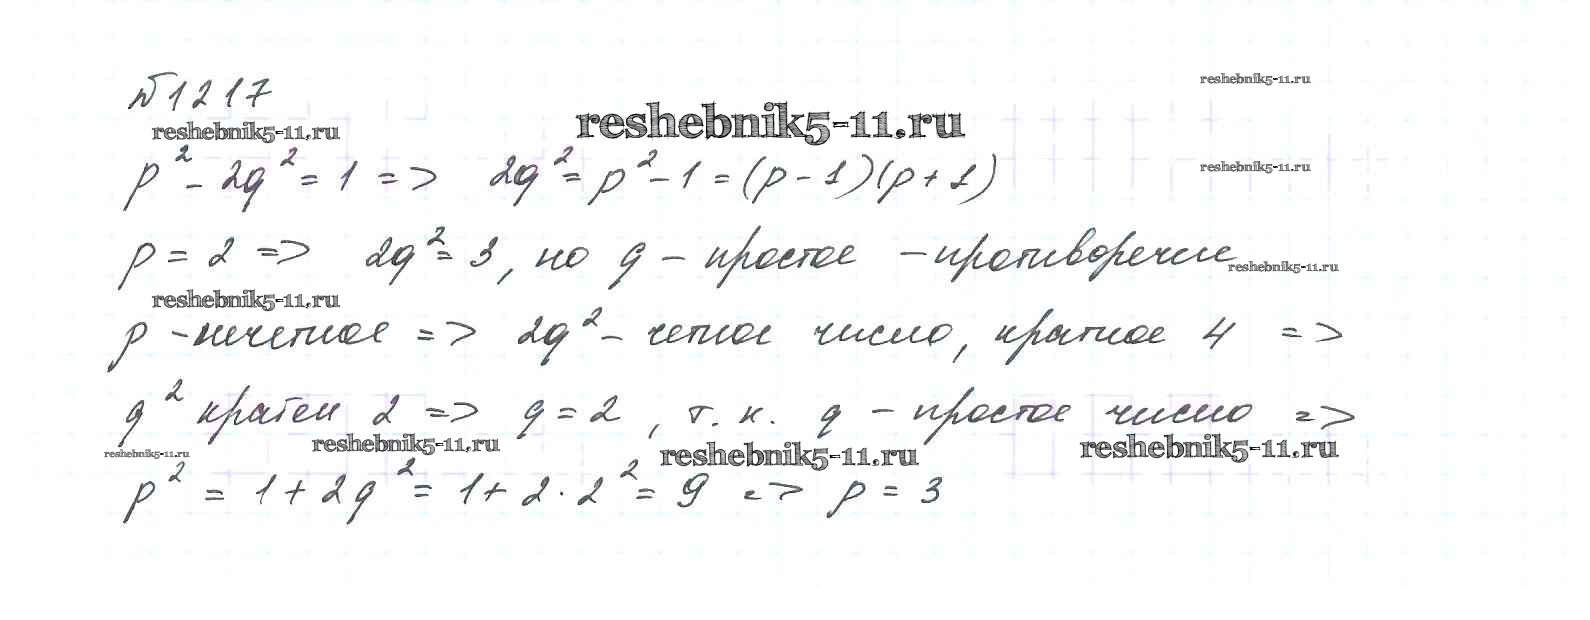 №1217
reshebnik5-11.ru
reshebnik5-11.ru
reshebnik5-11.ru
p² - 2q² = 1 => 2q² = p² - 1 = (p - 1)(p + 1)
reshebnik5-11.ru
p = 2 => 2q² = 3, но q - простое - противоречие
reshebnik5-11.ru
reshebnik5-11.ru
p - нечетное => 2q² - четное число, кратное 4 =>
q² кратен 2 => q = 2, т.к. q - простое число =>
reshebnik5-11.ru
reshebnik5-11.ru
reshebnik5-11.ru
reshebnik5-11.ru
p² = 1 + 2q² = 1 + 2 · 2² = 9 => p = 3